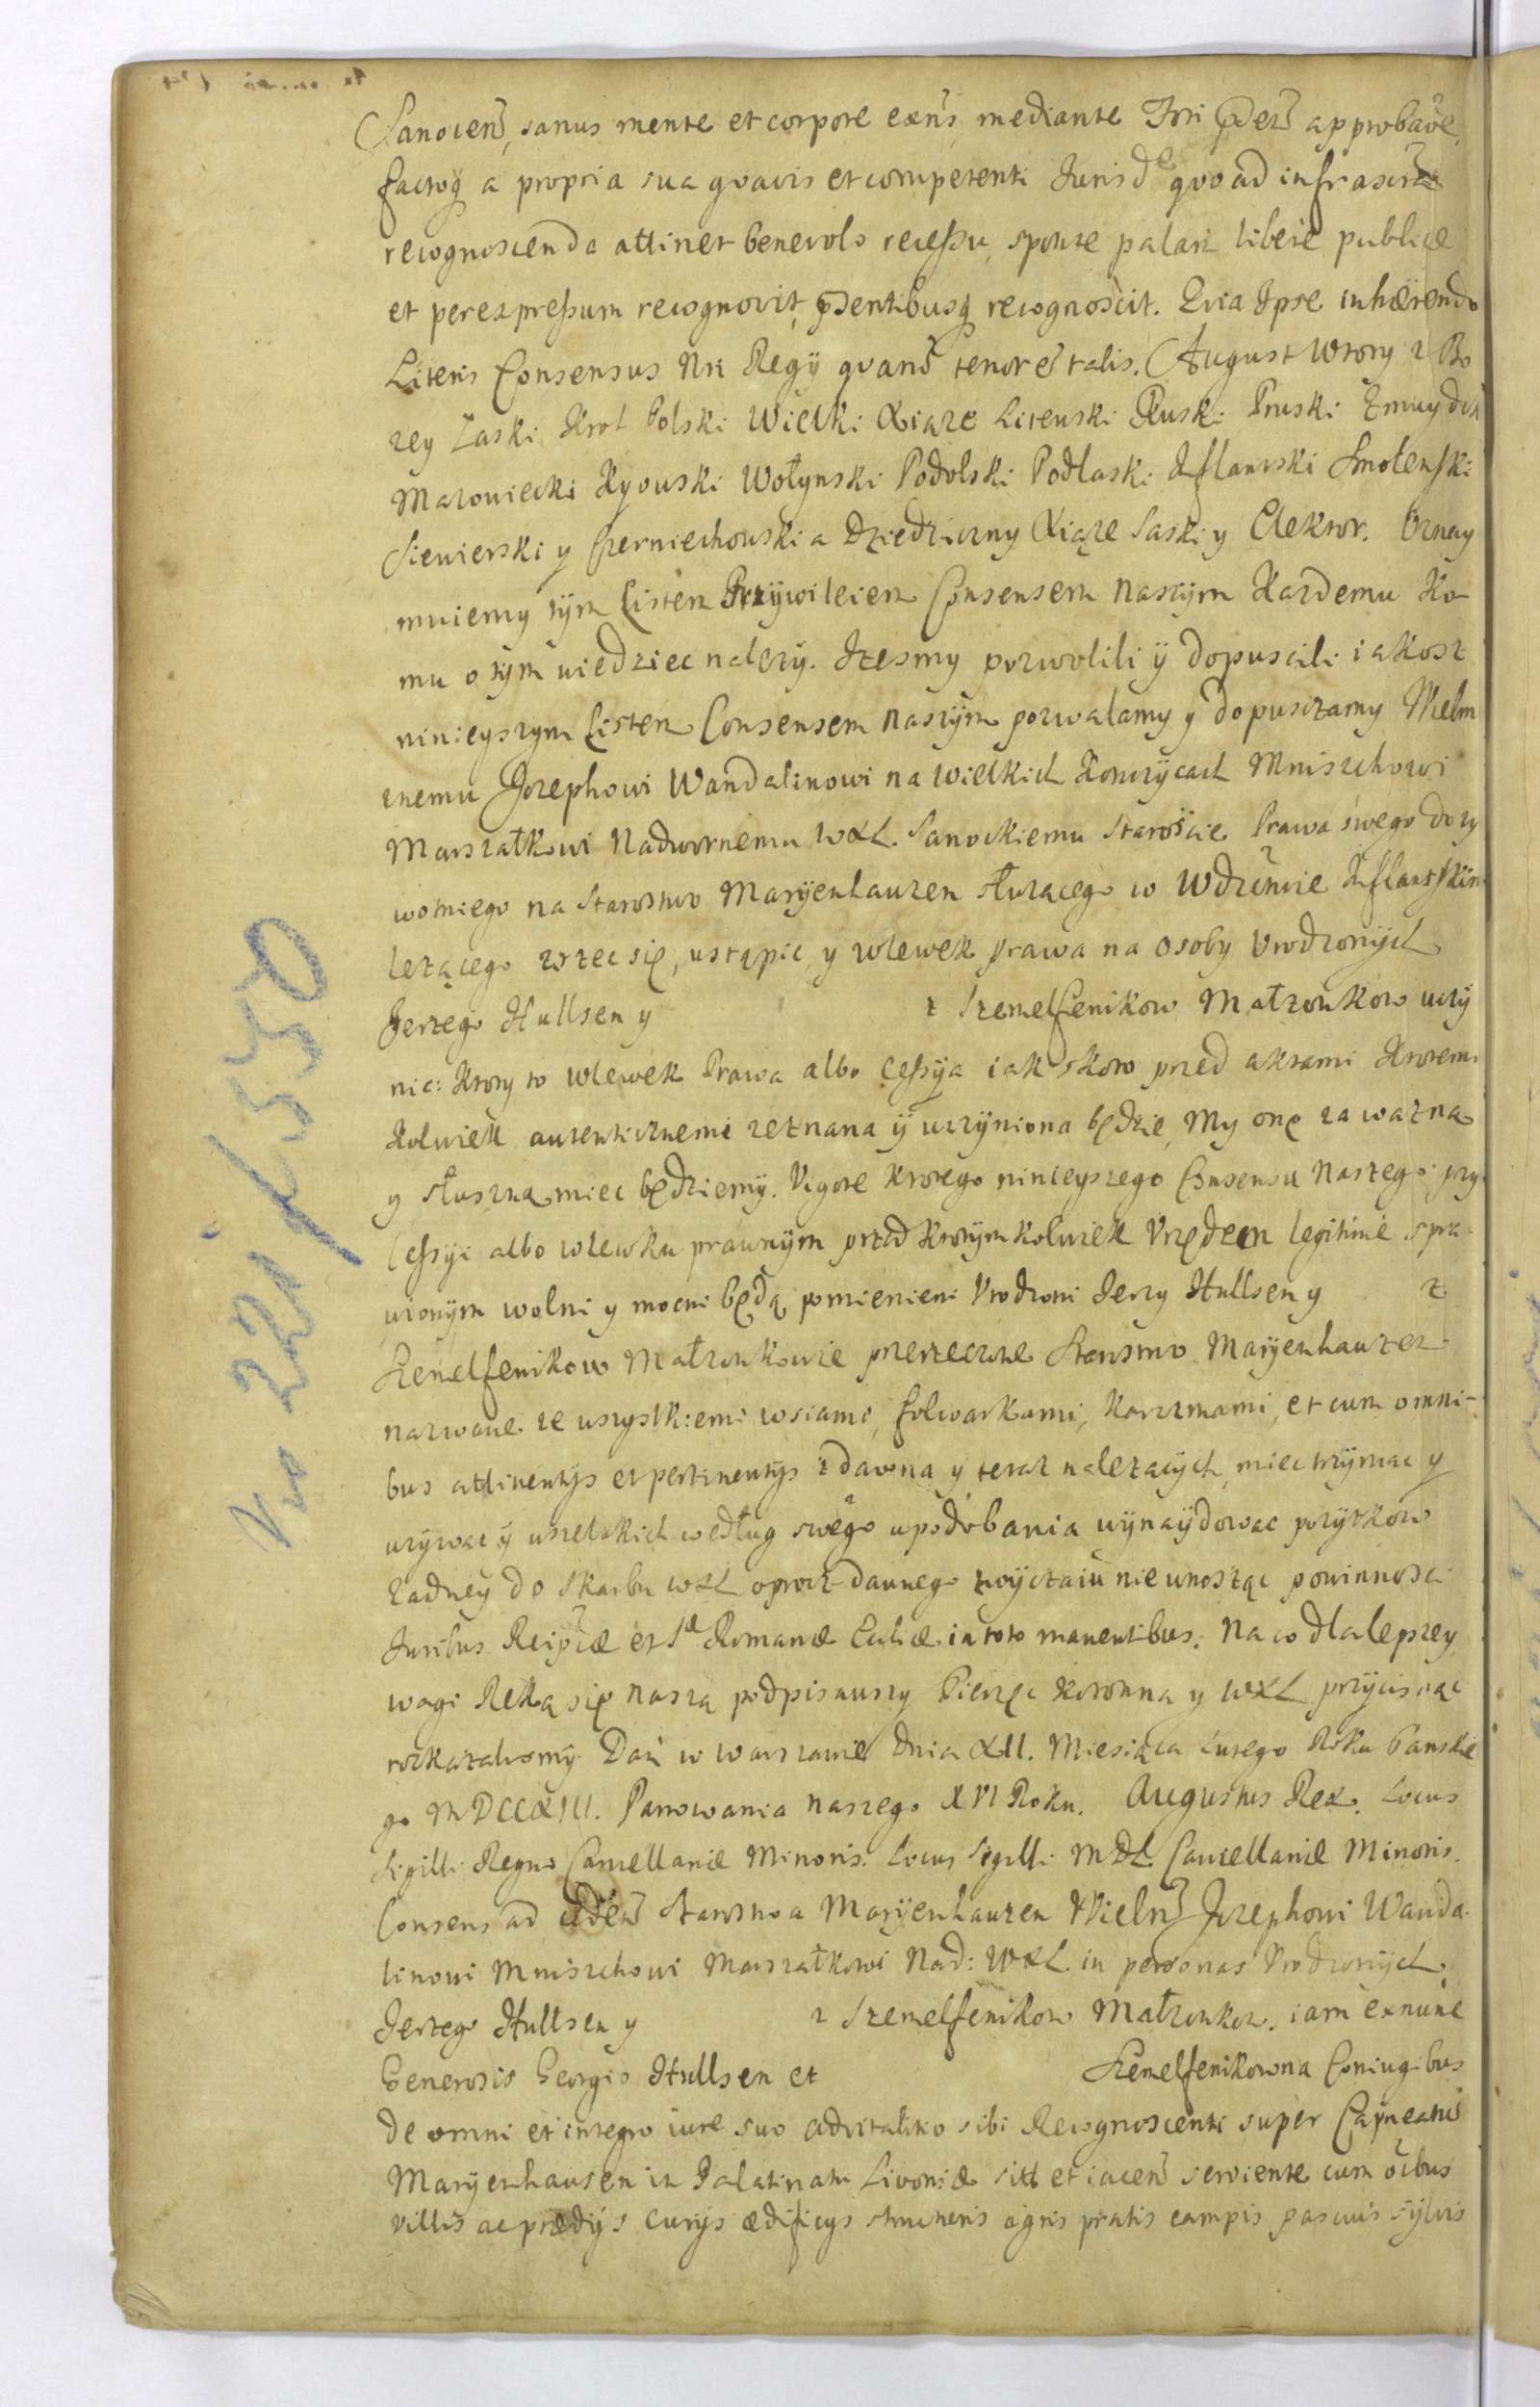 Sanocen, sanus mente et corpore exns mediante Iuri pden approbaĩe
factoq a propria sua quavis et competenti Jurisde quo ad infrascra
recognoscenda attinet benevolo recessu, sponte palam libere publice
et per expressum recognovit, pdentibusq recognoscit. Quia Ipse inhærendo
Literis Consensus Nri Regij quarũ tenor ẽ talis. August Wtory z Bo
zey Łaski Krol Polski Wielki Xiąze Litewski Ruski Pruski Zmuydzki
Mazowiecki Kyowski Wołynski Podolski Podlaski Inflantski Smolenski
Siewierski y Czerniechowski a Dziedziczny Xiąze Saski y Elektor. Oznay
muiemy tym Listem Przywileiem Consensem naszym Kazdemu Ko
mu o tym wiedziec nalezy. Izesmy pozwolili ÿ dopuscili iakosz
ninieyszym Listem Consensem naszym pozwalamy y dopuszczamy Wielm
znemu Jozephowi Wandalinowi na Wielkich Konczycach Mniszchowi
Marszałkowi Nadwornemu WXL. Sanockiemu Staroscie Prawa swego dozy
wotniego na Starostwo Maryenhauzen słuzącego w Wdztwie Inflantskim
lezącego zrzec się, ustąpic, y wlewek prawa na osoby Vrodzonych
Jerzego Hullsen y z Szemelfenikow Małzonkow uczy
nic: Ktory to wlewek Prawa albo cessya iak skoro przed aktami ktoremi
kolwiek autenticznemi zeznana ÿ uczyniona będzie, My onę za wazną
y słuszną miec będziemy. Vigore ktorego ninieyszego Consensu Naszego przy
Cessyi albo wlewku prawnym przed ktorymkolwiek Vrzędem legitime spra
wionym wolni y mocni będą pomienieni Vrodzoni Jerzy Hullsen y z
Szemelfenikow Małzonkowie przerzeczone Starostwo Maryenhauzen
nazwane ze wszystkiemi wsiami, folwarkami, karczmami, et cum omni-
bus attinentijs et pertinentijs z dawna y teraz nalezących, miec trzymac y
uzywac ÿ wszelakich według swego upodobania wynaydowac pozytkow
zadney do Skarbu WXL oprocz dawnego zwyczaiu nie wnosząc powinnosci
Juribus Reipcæ et Sæ Romanæ Eccliæ in toto manentibus. Na co dla lepszey
wagi Ręką się naszą podpisawszy Pieczęc koronną y WXL przycisnąc
rozkazalismy. Dan w Warszawie dnia XII. Miesiąca Lutego Roku Panskie
go MDCCXIII. Panowania naszego XVI Roku. Augustus Rex. Locus
Sigilli Regni Cancellariæ Minoris. Locus Sigilli MDL Cancellariæ Minoris.
Consens ad cedend Starostwa Maryenhauzen Wieln Jozephowi Wanda
linowi Mniszchowi Marszałkowi Nad: WXL in personas Vrodzonych
Jerzego Hullsen y z Szemelfenikow Małzonkow. iam exnunc
Generosis Georgio Hullsen et Szemelfenikowna Coniugibus
de omni et integro iure suo advitalitio sibi Recognoscenti super Capneatu
Maryenhausen in Palatinatu Livoniæ sitt et iacen serviente cum oibus
villis ac prædijs curijs ædificijs structuris agris pratis campis pascuis sylvis